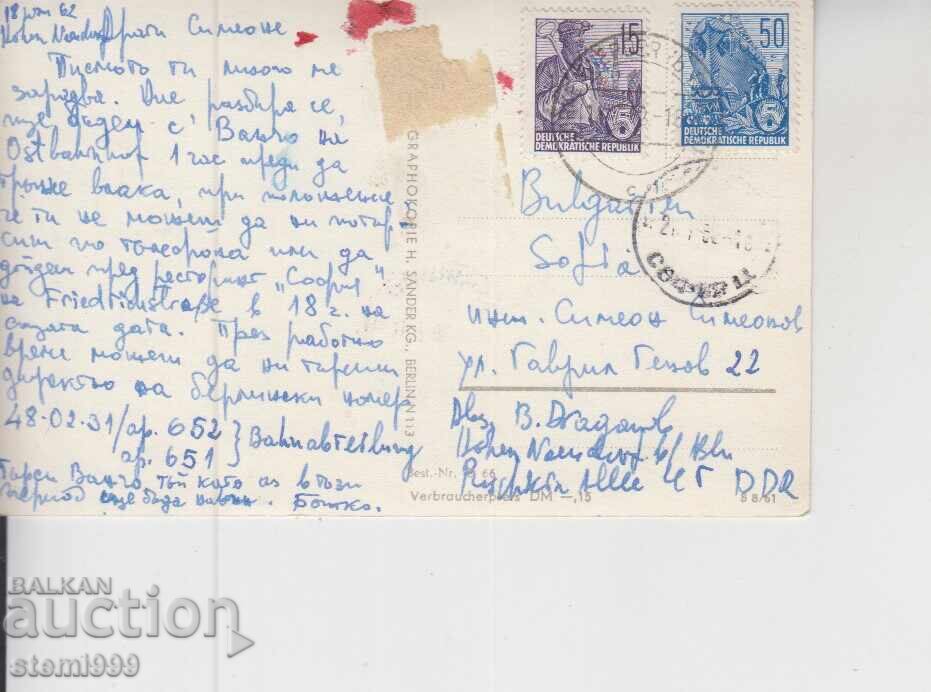 18 62
Драги Симеоне
Писмото ти много ме
зарадва. Ние разбира се,
ще бъдем с Ванчо на
Ostbahnhof 1 час преди да
тръгне влака, при положение,
че ти не можеш да ни потър-
сиш по телефона или да
дойдеш пред ресторант "София"
на Friedrichstraße в 18 ч. на
същата дата. През работно
време можеш да ни търсиш
директно на берлински номер
48-02-31/ап. 652 } Bahnabteilung
ап. 651
Търси Ванчо тъй като аз в този
период ще бъда навън. Ботко.
GRAPHOKOPIE H. SANDER KG., BERLIN N 113
Best.-Nr. 66
Verbraucherpreis DM —,15
B 8/61
15
DEUTSCHE
DEMOKRATISCHE REPUBLIK
50
DEUTSCHE
DEMOKRATISCHE REPUBLIK
СОФИЯ Ц
Bulgarien
Sofia
инж. Симеон Симеонов
ул. Гаврил Генов 22
Abs. В. Драганов
Hohen Neuendorf b/ Bln
Puschkin Allee 45 DDR
BALKAN
auction
stemi999